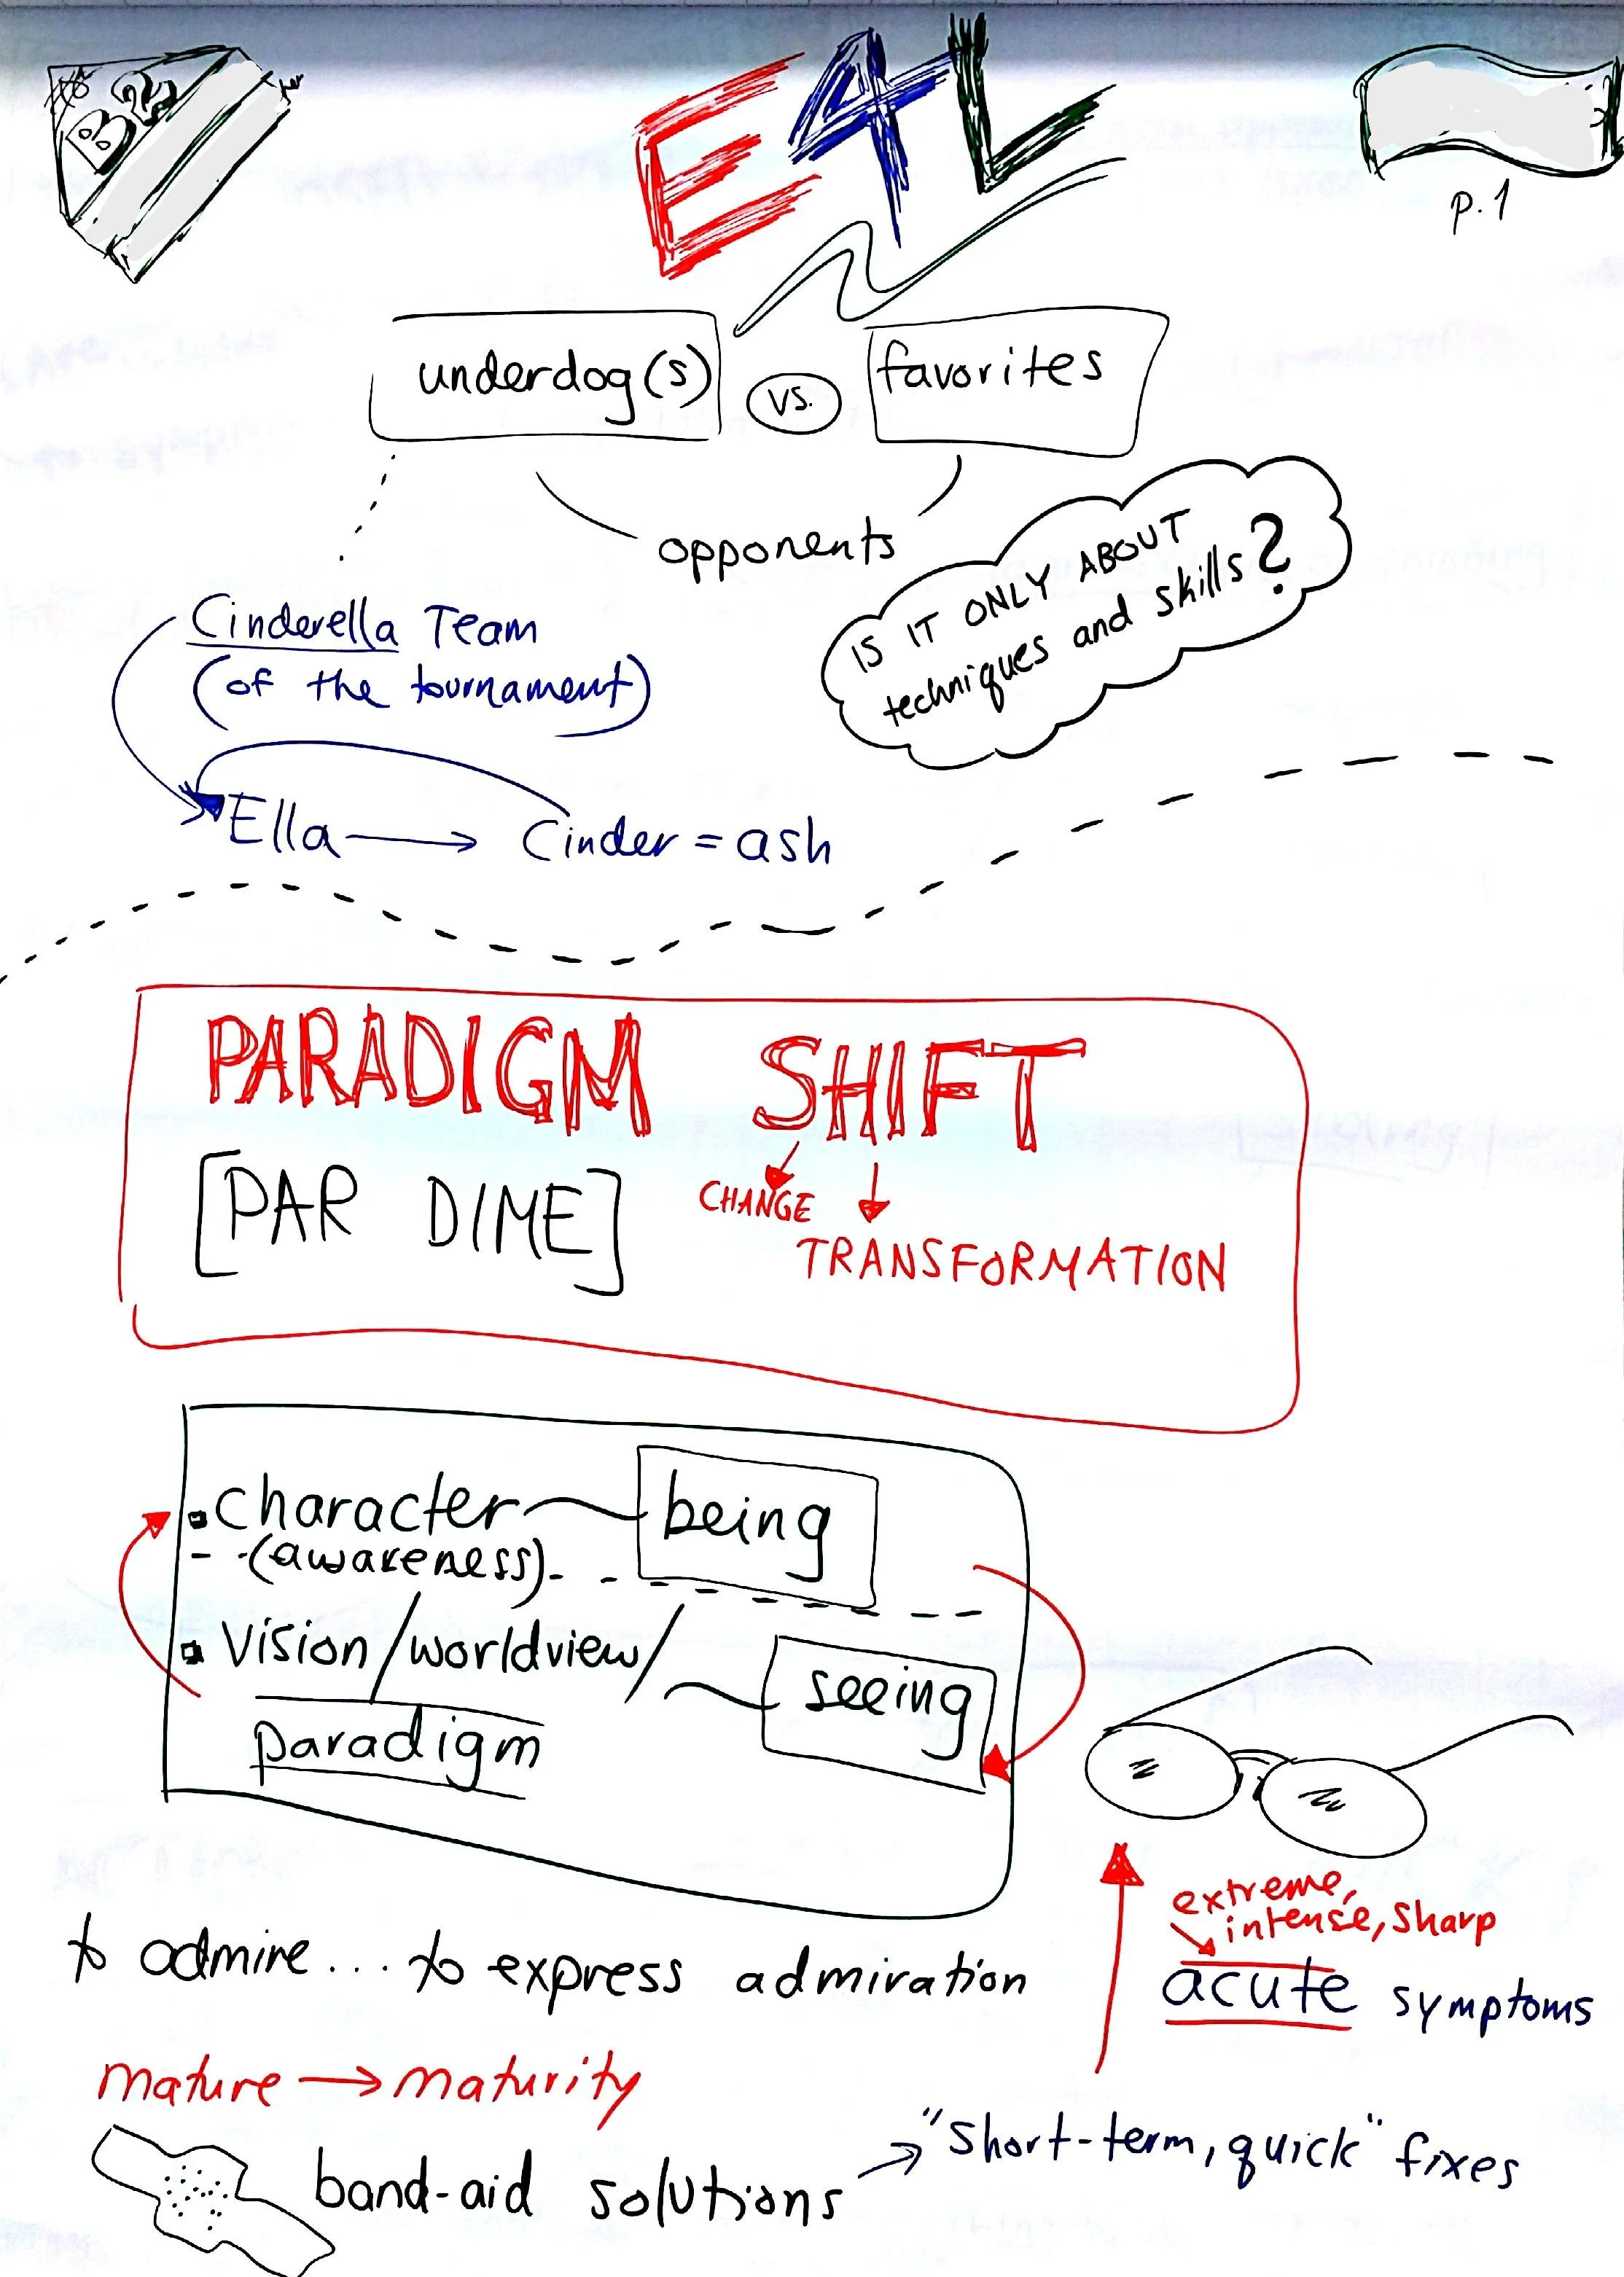 B2
E4L
p.1
underdog(s) vs. favorites
opponents
IS IT ONLY ABOUT
techniques and skills?
Cinderella Team
(of the tournament)
Ella → Cinder = ash
PARADIGM SHIFT
[PAR DIME]
CHANGE
TRANSFORMATION
▪ Character being
(awareness)
▪ Vision/worldview/ seeing
paradigm
extreme,
intense, sharp
acute symptoms
to admire... to express admiration
mature → maturity
band-aid solutions → "short-term, quick" fixes